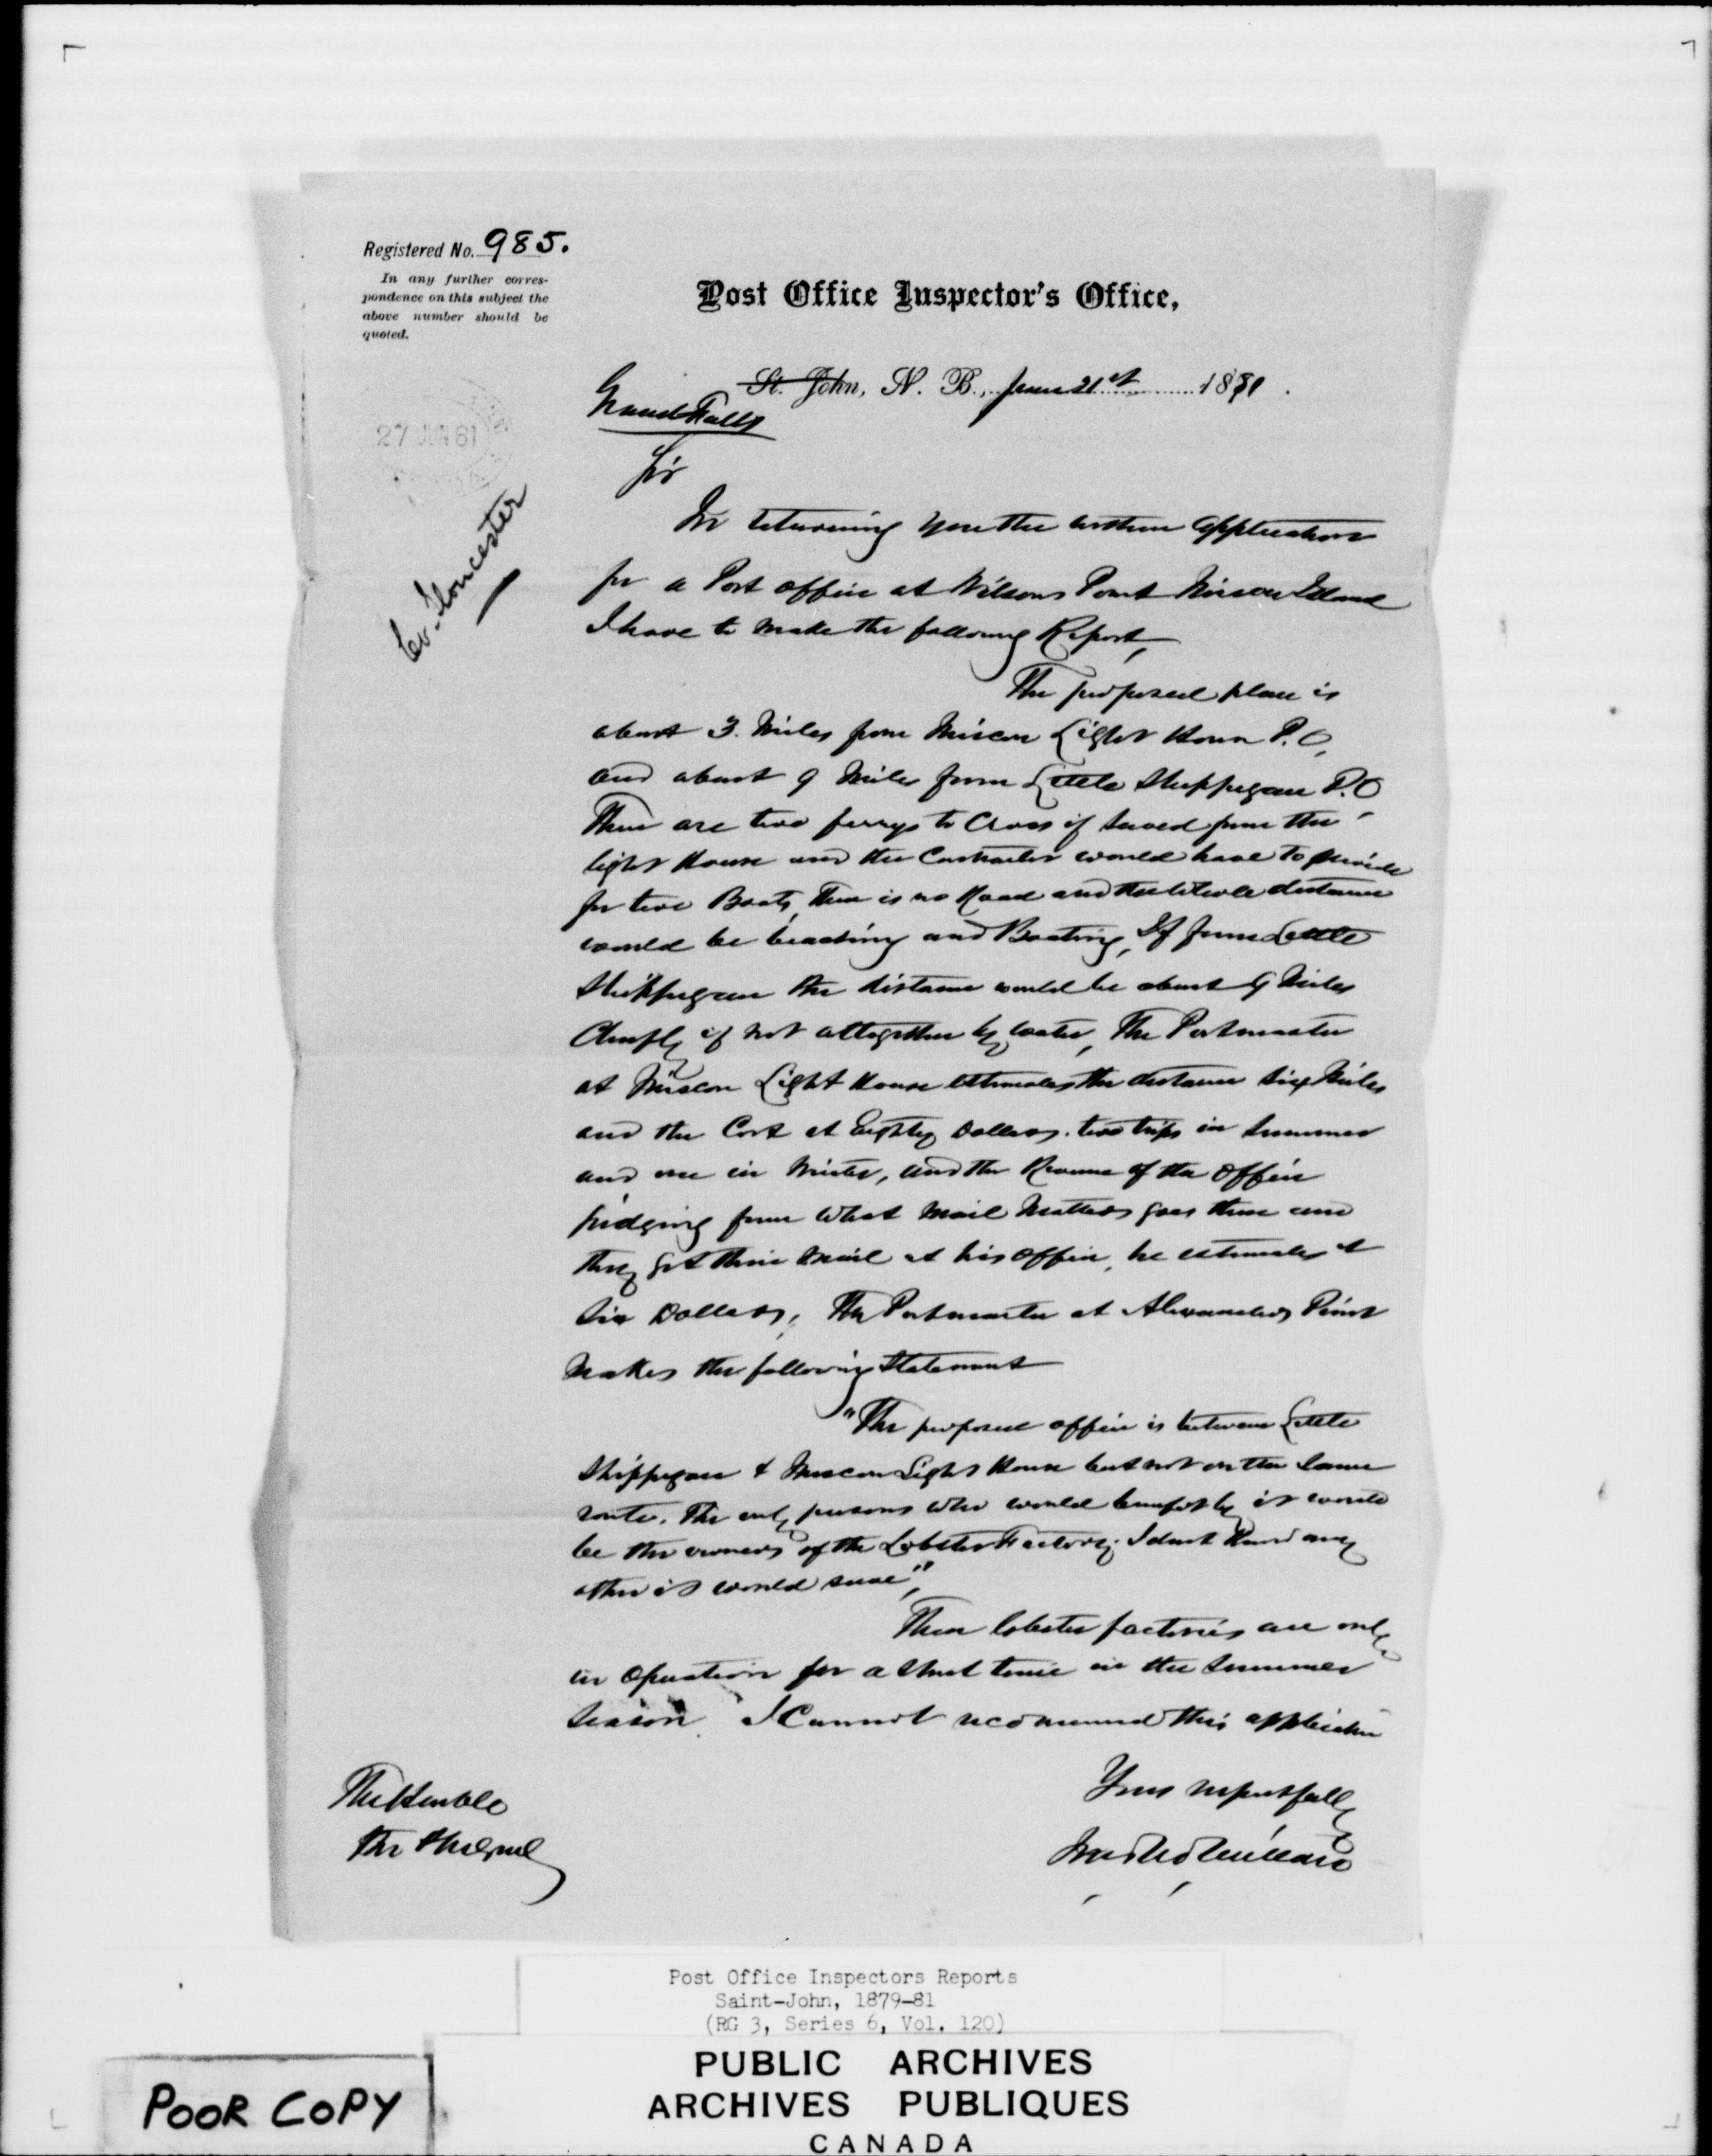 Registered No. 985.
In any further corres-
pondence on this subject the
above number should be
quoted.
Post Office Inspector's Office,
St. John, N. B., June 21st 1881.
Grand Falls
27 JUN 81
Co. Gloucester
Sir
In returning you the within application
for a Post office at Wilsons Point Miscou Island
I have to make the following Report,
The proposed place is
about 3 Miles from Miscou Light House P.O,
and about 9 Miles from Little Shippegan P.O
There are two ferrys to Cross if served from the
light House and the Contractor would have to provide
for two Boats, there is no Road and the whole distance
would be beaching and Boating, If from Little
Shippegan the distance would be about 9 Miles
Chiefly if not altogether by water, The Postmaster
at Miscou Light House estimates the distance six Miles
and the Cost at Eighty Dollars. two trips in Summer
and one in Winter, and the Revenue of the Office
judging from what mail matters goes there and
they get their mail at his office, he estimates at
Six Dollars, The Postmaster at Alexanders Point
makes the following statement
"The proposed office is between Little
Shippegan & Miscou Light House but not on the same
route. The only persons who would benefit by it would
be the owners of the Lobster Factory; I dont know any
other it would serve",
These lobster factories are only
in Operation for a short time in the Summer
Season. I Cannot recommend this application
Yours respectfully
The Honble
The
Post Office Inspectors Reports
Saint-John, 1879-81
(RG 3, Series 6, Vol. 120)
PUBLIC ARCHIVES
ARCHIVES PUBLIQUES
CANADA
POOR COPY